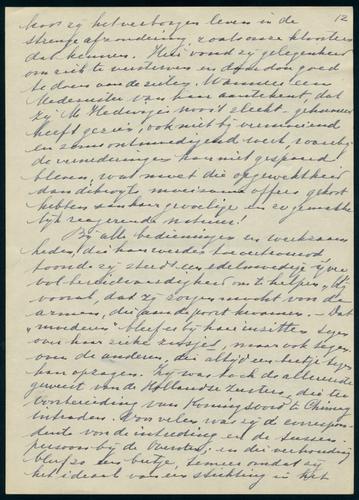 12
door zij het verborgen leven in de
strenge afzondering zooals onze kloosters
dat kennen. Hier vond zij gelegenheid
om zich te versterven en daardoor goed
te doen aan de zielen. Wanneer een
Medezuster van haar aanteekent, dat
zij M. Hedwigis nooit slecht gehumeurd
heeft gezien, ook niet bij vermoeiend
en soms ontmoedigend werk, waarbij
de vernederingen haar niet gespaard
bleven, wat moet die opgewektheid
dan dikwijls moeizame offers gekost
hebben aan haar gevoelige en zo gemakke-
lijk reagerende natuur!
Bij alle bedieningen en werkzaam-
heden, die haar werden toevertrouwd
toonde zij steeds een edelmoedige ijver
vol bereidvaardigheid om te helpen,
vooral, dat zij zorgen mocht voor de
armen, die aan de poort kwamen. - Dat
"moederen" bleef zij haar inzetten tegen-
over haar zieke zusjes, maar ook tegen-
over de anderen, die altijd een beetje tegen
haar opzagen. Zij was toch de allereerste
geweest van de Hollandse zusters, die ter
voorbereiding van Koningsoord te Chimay
intraden. Von velen was zij de correspon-
dente vóór de intreding en de tussen-
persoon bij de Overste; en die verhouding
bleef zo een beetje, temeer omdat zij
het ideaal van een stichting in het